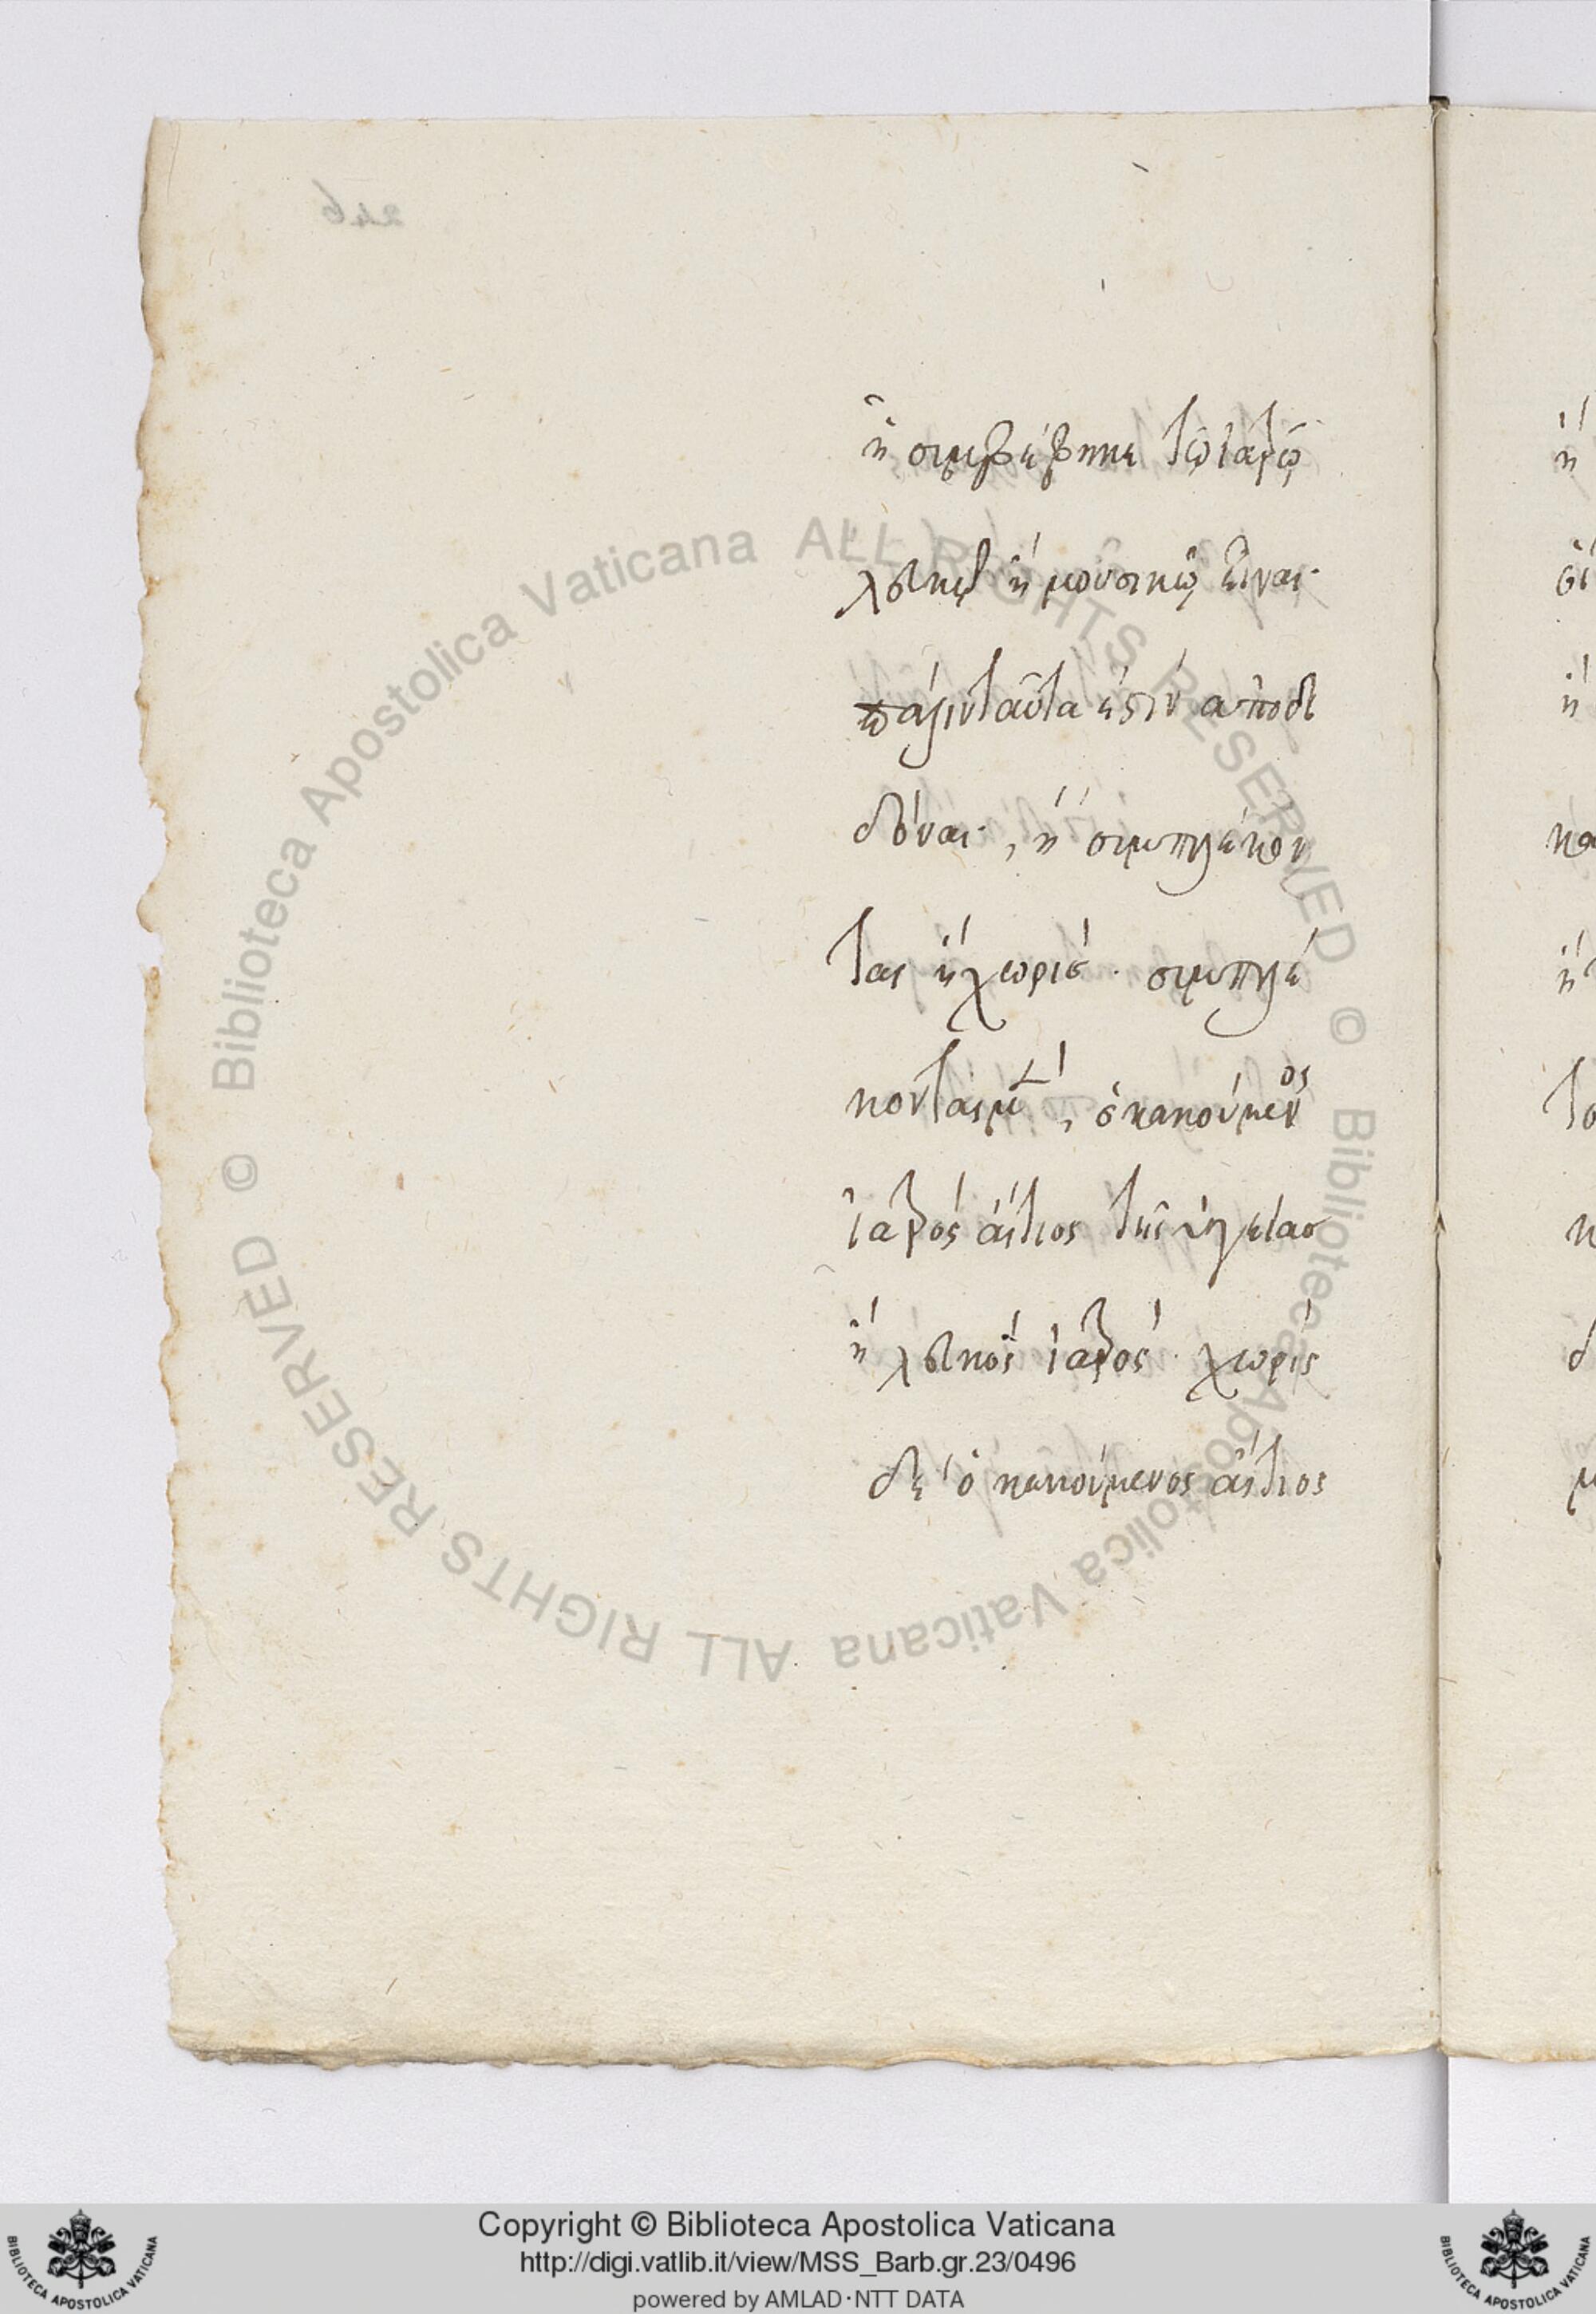 ᾗ συμβέβηκε τῷ ἰατρῷ
λευκῷ ἢ μουσικῷ εἶναι·
πάλιν ταῦτα ἐστὶν ἀποδι
δόναι, ἢ συμπλέκον
τας ἢ χωρίς· συμπλέ
κοντας μὲν, ὁ κακούμενος
ἰατρὸς αἴτιος τῆς ὑγείας
ἢ λευκὸς ἰατρός· χωρὶς
δὲ ὁ κακούμενος αἴτιος
246
© Biblioteca Apostolica Vaticana ALL RIGHTS RESERVED © Biblioteca Apostolica Vaticana ALL RIGHTS RESERVED
Copyright © Biblioteca Apostolica Vaticana
http://digi.vatlib.it/view/MSS_Barb.gr.23/0496
powered by AMLAD·NTT DATA
BIBLIOTECA APOSTOLICA VATICANA
BIBLIOTECA APOSTOLICA VATICANA